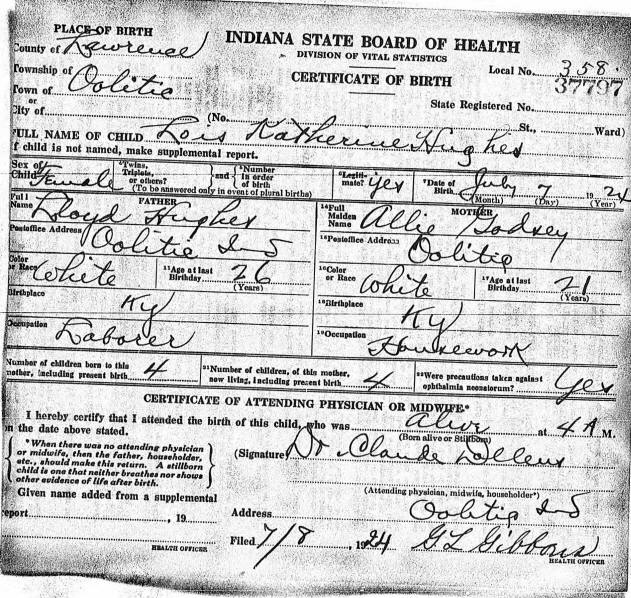 PLACE OF BIRTH
County of Lawrence
Township of
Town of Oolitic
or
City of
INDIANA STATE BOARD OF HEALTH
DIVISION OF VITAL STATISTICS
CERTIFICATE OF BIRTH
Local No. 358.
37797
State Registered No.
(No. St., Ward)
FULL NAME OF CHILD Lois Katherine Hughes
If child is not named, make supplemental report.
Sex of Child Female
Twins, Triplets, or others?
and
Number in order of birth
(To be answered only in event of plural births)
Legiti-mate? yes
Date of Birth July 7 1924
(Month) (Day) (Year)
FATHER
Full Name Lloyd Hughes
Postoffice Address Oolitic Ind
Color or Race White
11Age at last Birthday 26
(Years)
Birthplace Ky
Occupation Laborer
MOTHER
14Full Maiden Name Allie Godsey
15Postoffice Address Oolitic
16Color or Race White
17Age at last Birthday 21
(Years)
18Birthplace Ky
19Occupation Housework
Number of children born to this mother, including present birth 4
21Number of children, of this mother, now living, including present birth 4
22Were precautions taken against ophthalmia neonatorum? yes
CERTIFICATE OF ATTENDING PHYSICIAN OR MIDWIFE*
I hereby certify that I attended the birth of this child, who was Alive at 4 A M.
(Born alive or Stillborn)
on the date above stated.
*When there was no attending physician
or midwife, then the father, householder,
etc., should make this return. A stillborn
child is one that neither breathes nor shows
other evidence of life after birth.
(Signature) Dr Claude
(Attending physician, midwife, householder*)
Given name added from a supplemental
report , 19
HEALTH OFFICER
Address Oolitic Ind
Filed 7/8, 1924 GL Gibbons
HEALTH OFFICER